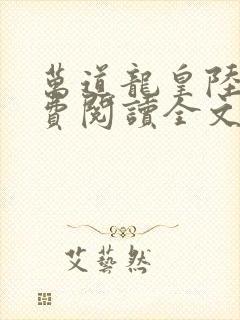 萬道龍皇陸
費閱讀全文
艾藝然